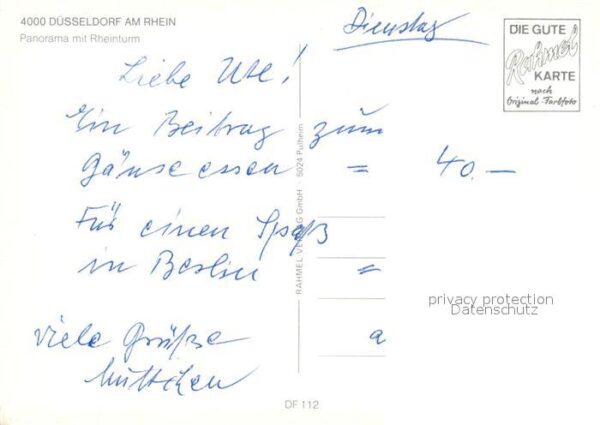 4000 DÜSSELDORF AM RHEIN
Panorama mit Rheinturm
Dienstag
DIE GUTE
Rahmel
KARTE
nach
Original-Farbfoto
Liebe Ute!
Ein Beitrag zum
Gänseessen = 40.—
Für einen Spaß
in Berlin =
a
viele Grüße
Muttchen
RAHMEL VERLAG GmbH · 5024 Pulheim
privacy protection
Datenschutz
DF 112